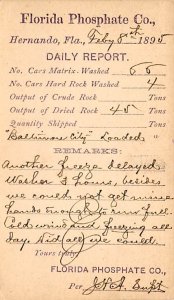 Florida Phosphate Co.,
Hernando, Fla., Feby 8th 1895
DAILY REPORT.
No. Cars Matrix Washed 66
No. Cars Hard Rock Washed 4
Output of Crude Rock Tons
Output of Dried Rock 45 Tons
Quantity Shipped Tons
"Baltimore City" Loaded, "
REMARKS:
Another freeze delayed
Washer 3 hours, besides
we could not get
hands enough to run full.
Cold wind and freezing all
day. Did all we could.
Yours truly,
FLORIDA PHOSPHATE CO.,
Per Supt